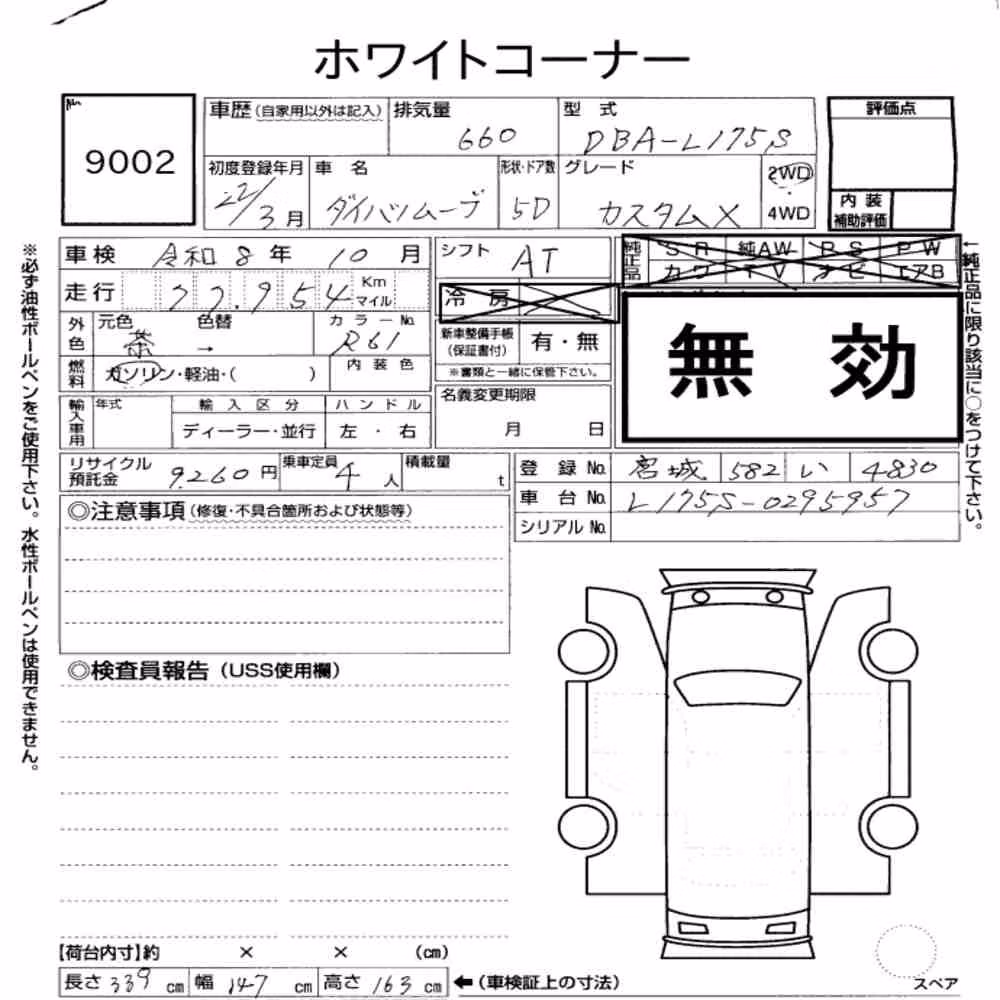 ホワイトコーナー
9002
車歴 (自家用以外は記入) 排気量 型 式 評価点
660 DBA-L175S
初度登録年月 車 名 形状・ドア数 グレード 2WD
22/3月 ダイハツムーブ 5D カスタムX ・ 4WD
内 装 補助評価
車検 令和 8 年 10 月 シフト AT
純正品 S R 純AW P S P W
カワ T V ナビ エアB
走行 77.954 Km マイル 冷 房
無 効
外色 元色 色替 カラーNo.
茶 → R61
新車整備手帳 (保証書付) 有・無
※書類と一緒に保管下さい。
燃料 ガソリン・軽油・( ) 内 装 色
輸入車用 年式 輸 入 区 分 ハ ン ド ル
ディーラー・並行 左 ・ 右
名義変更期限
月 日
リサイクル預託金 9,260 円 乗車定員 4 人 積載量 t
登 録 No. 宮城 582 い 4830
車 台 No. L175S-0295957
シリアル No.
◎注意事項 (修復・不具合箇所および状態等)
◎検査員報告 (USS使用欄)
【荷台内寸】約 × × (cm)
長さ 339 cm 幅 147 cm 高さ 163 cm ←(車検証上の寸法)
スペア
※必ず油性ボールペンをご使用下さい。水性ボールペンは使用できません。
←純正品に限り該当に○をつけて下さい。